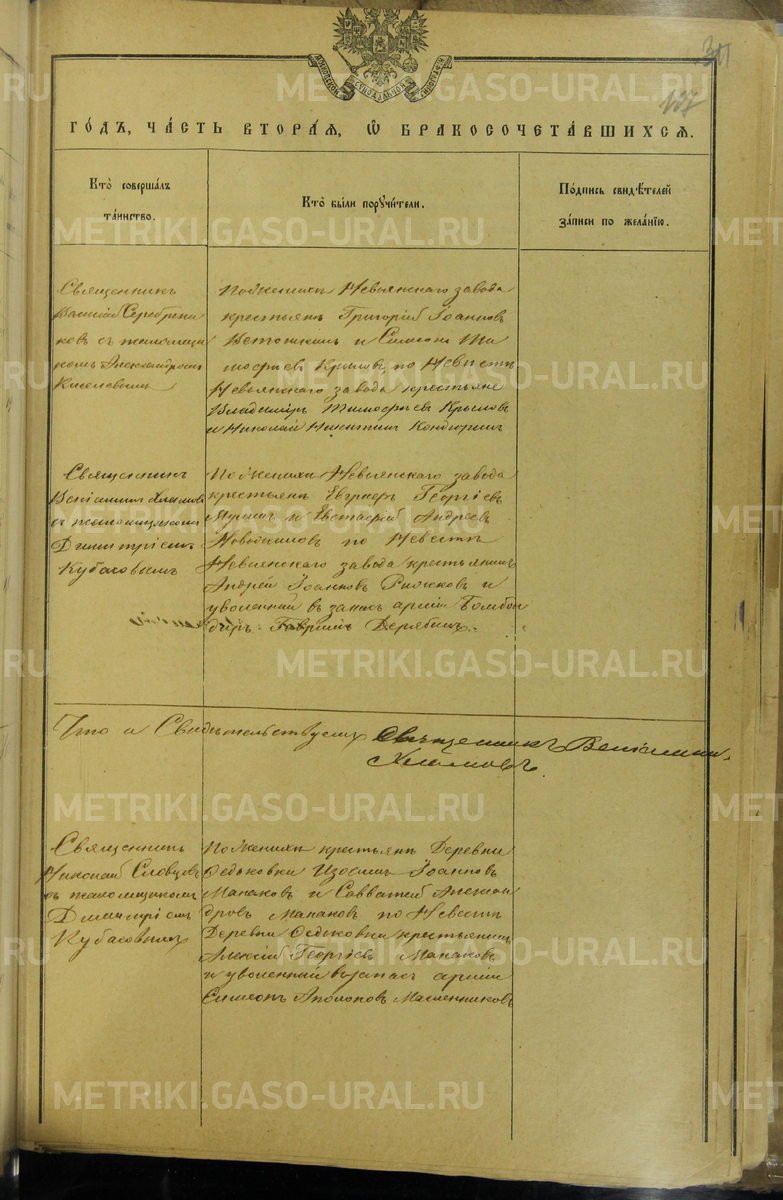 137
ГО́ДЪ, ЧА́СТЬ ВТОРА́Я, Ѿ БРАКОСОЧЕТА́ВШИХСЯ.
Кто̀ соверша́лъ
та́инство.
Кто̀ бы́ли порꙋчи́тели.
По́дпись свидѣ́телей
за́писи по жела́нїю.
Священникъ
Василій Серебрени
ковъ съ псаломщи
комъ Александромъ
Киселевымъ
По женихѣ Невьянскаго завода
крестьяне Григорій Іоанновъ
и Симеонъ Ти
мофеевъ Крыловъ, по Невѣстѣ
Невьянскаго завода крестьяне
Владиміръ Тимофѣевъ Крыловъ
и Николай Никитинъ Кондюринъ
Священникъ
Веніаминъ Хламовъ
съ псаломщикомъ
Димитріемъ
Кубасовымъ
По женихѣ Невьянскаго завода
крестьяне Георгіевъ
и Евстафій Андреевъ
по Невѣстѣ
Невьянскаго завода крестьянинъ
Андрей Іоанновъ и
уволенный въ запасъ арміи Бомбар
диръ Гавріилъ Дерябинъ.
Что и Свидѣтельствуемъ Священникъ Веніаминъ
Хламовъ.
Священникъ
Николай Словцовъ
съ псаломщикомъ
Димитріемъ
Кубасовымъ
По женихѣ крестьяне Деревни
Федьковки Изосимъ Іоанновъ
Манаковъ и Савватей Алексан
дровъ Манаковъ по Невѣстѣ
Деревни Федьковки крестьянинъ
Алексій Георгіевъ Манаковъ
и уволенный въ запасъ арміи
Симеонъ Масленниковъ
METRIKI.GASO-URAL.RU